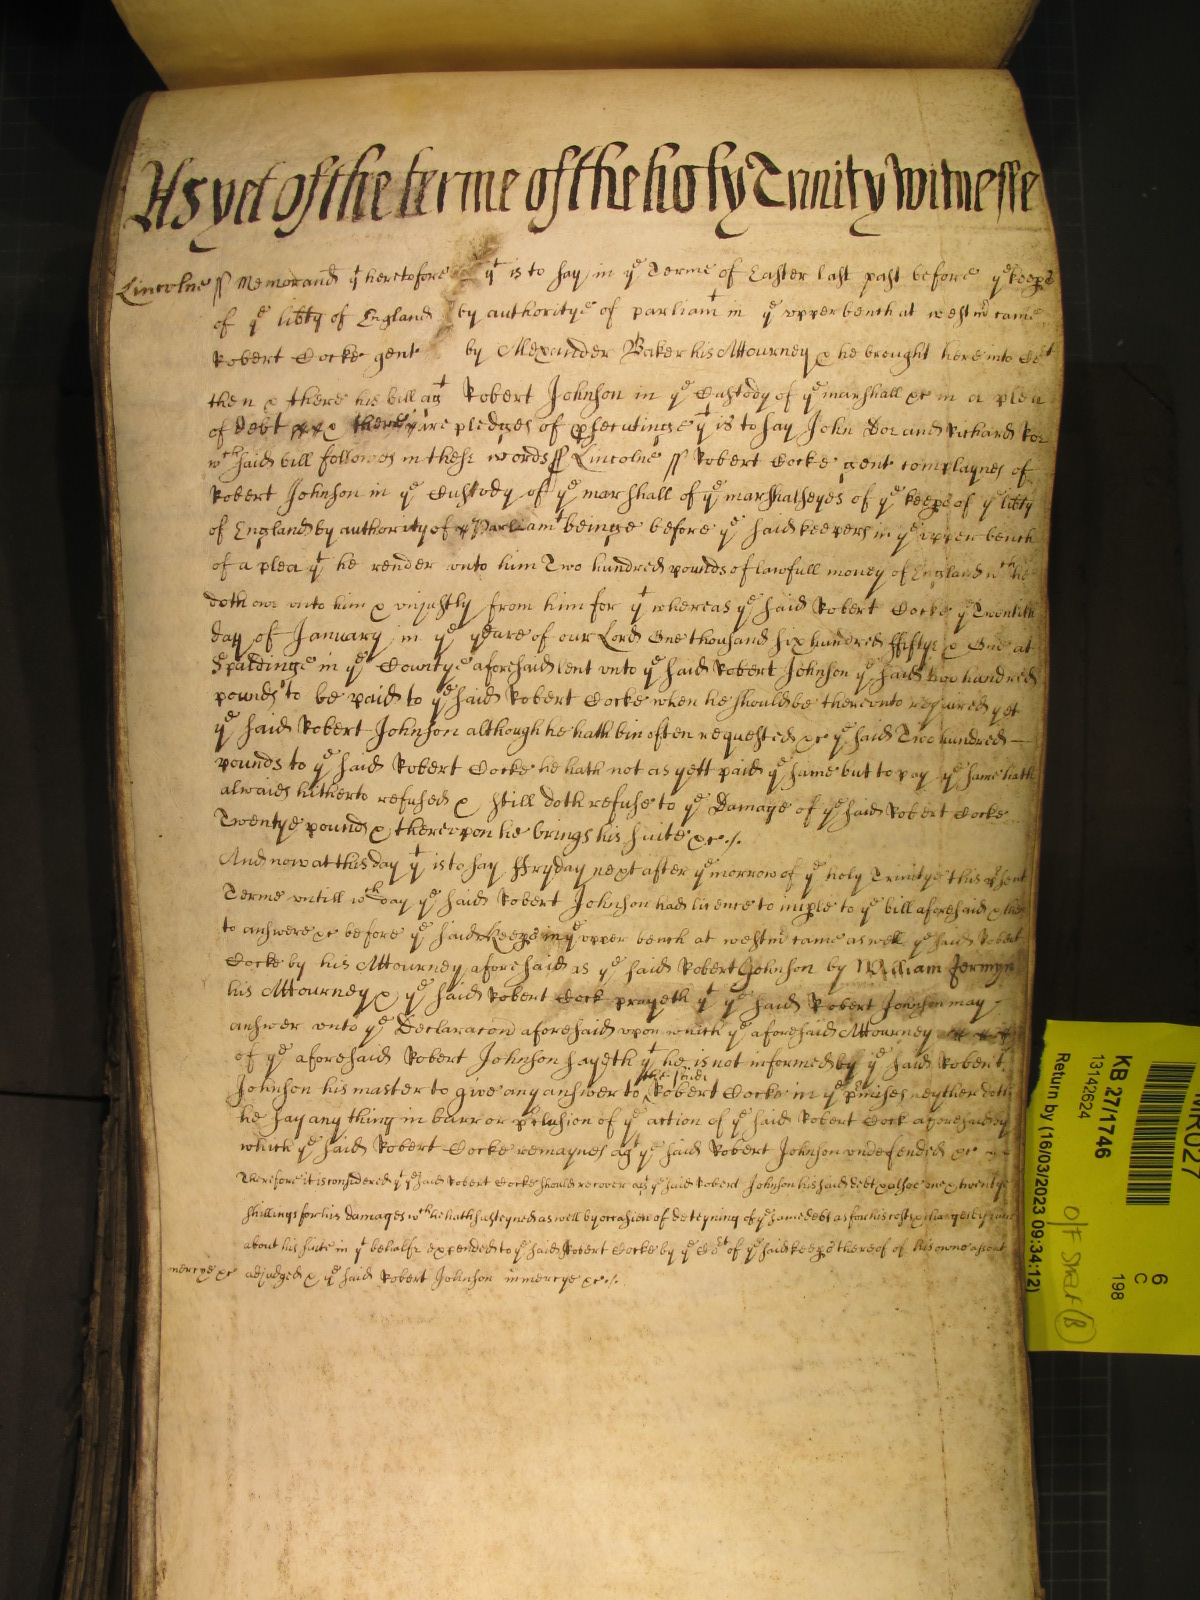 As yet of the terme of the holy Trinity Witnesse
Lincolne ss Memorand yt heretofore yt is to say in ye Terme of Easter last past before ye keeps
of ye libty of England by authoritye of parliamt in ye upper bench at westmr came
Robert Cocke gent by Alexander Baker his Attourney & he brought here into Cort
then & there his bill agt Robert Johnson in ye Custody of ye marshall &c in a plea
of debt there are pledges of psecutinge yt is to say John Doe and Richard Roe
wch said bill followes in these words ss Lincolne ss Robert Cocke gent complaynes of
Robert Johnson in ye Custody of ye marshall of ye marshalseyes of ye keeps of ye libty
of England by authority of Parliamt beinge before ye said keepers in ye upper bench
of a plea yt he render unto him Two hundred pounds of lawfull money of England wch he
doth owe unto him & unjustly from him for yt whereas ye said Robert Cocke ye Twentith
day of January in ye yeare of our Lord One thousand six hundred ffiftye & One at
Spaldinge in ye Countye aforesaid lent unto ye said Robert Johnson ye said two hundred
pounds to be paid to ye said Robert Cocke when he should be thereunto required yet
ye said Robert Johnson although he hath bin often requested &c ye said Two hundred
pounds to ye said Robert Cocke he hath not as yett paid ye same but to pay ye same hath
alwaies hitherto refused & still doth refuse to ye Damage of ye said Robert Cocke
Twentye pound & thereupon he brings his suite &c ./.
And now at this day yt is to say ffryday next after ye morrow of ye holy Trinitye this psent
Terme untill wch day ye said Robert Johnson had licence to imple to ye bill aforesaid & then
to answere &c before ye said keeps in ye upper bench at westmr came as well ye said Robert
Cocke by his Attourney aforesaid as ye said Robert Johnson by William Jermyn
his Attourney & ye said Robert Cock prayeth yt ye said Robert Johnson may
answer unto ye Declaracon aforesaid upon which ye aforesaid Attourney
of ye aforesaid Robert Johnson sayeth yt he is not informed by ye said Robert
Johnson his master to give any answer to the said Robert Cocke in ye pmises neyther doth
he say any thing in barr or pclusion of ye action of ye said Robert Cock aforesaid by
which ye said Robert Cocke remaynes agt ye said Robert Johnson undefended &c
Therefore it is considered yt ye said Robert Cocke should recover agt ye said Robert Johnson his said debt & alsoe one & twentye
shillings for his damages wch he hath susteyned as well by occasion of deteyning of ye same debt as for his costs & charges by him
about his suite in yt behalfe expended to ye said Robert Cocke by ye Cort of ye said keeps thereof of his owne assent
mercye &c adjudged & ye said Robert Johnson in mercye &c ./.
MR027
KB 27/1746
13142624
Return by (16/03/2023 09:34:12)
6
C
198